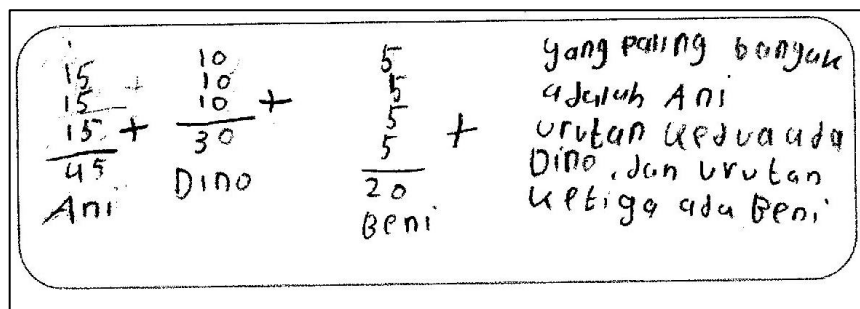 15
15
15 +
45
Ani
10
10
10 +
30
Dino
5
5
5
5 +
20
Beni
yang paling banyak
adalah Ani
urutan kedua ada
Dino, dan urutan
ketiga ada Beni